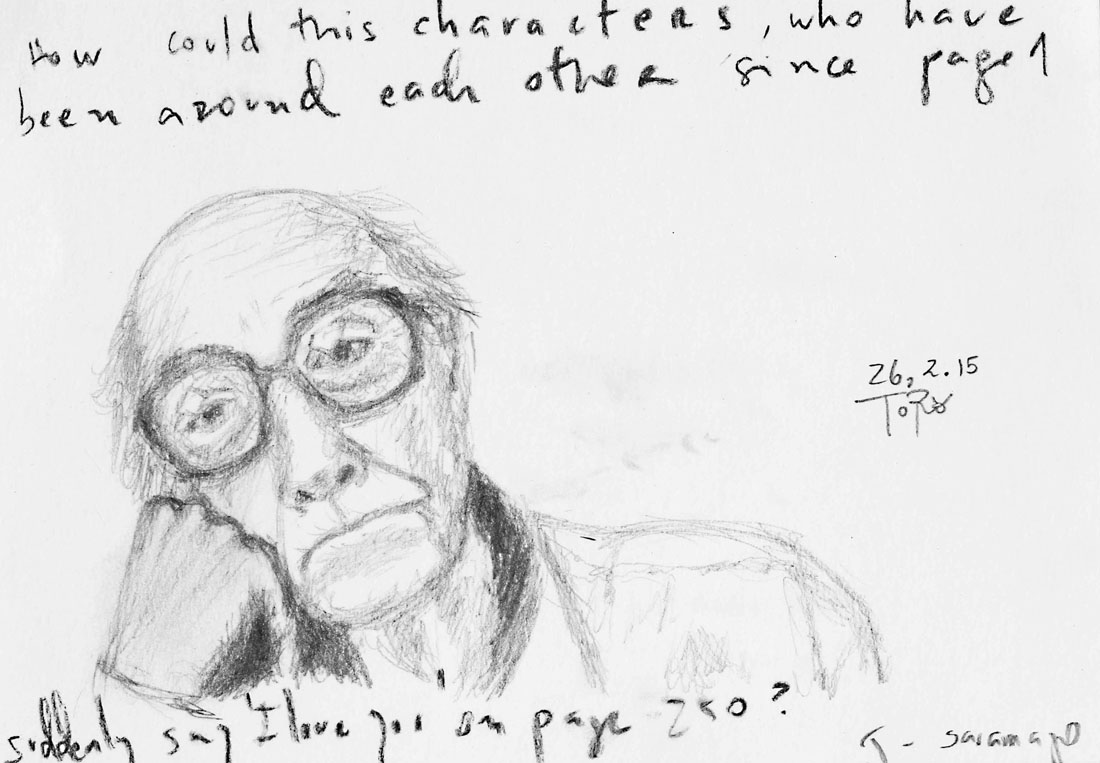 How could this characters, who have
been around each other since page 1
26.2.15
TORO
suddenly say 'I love you' on page 250?
J - saramago